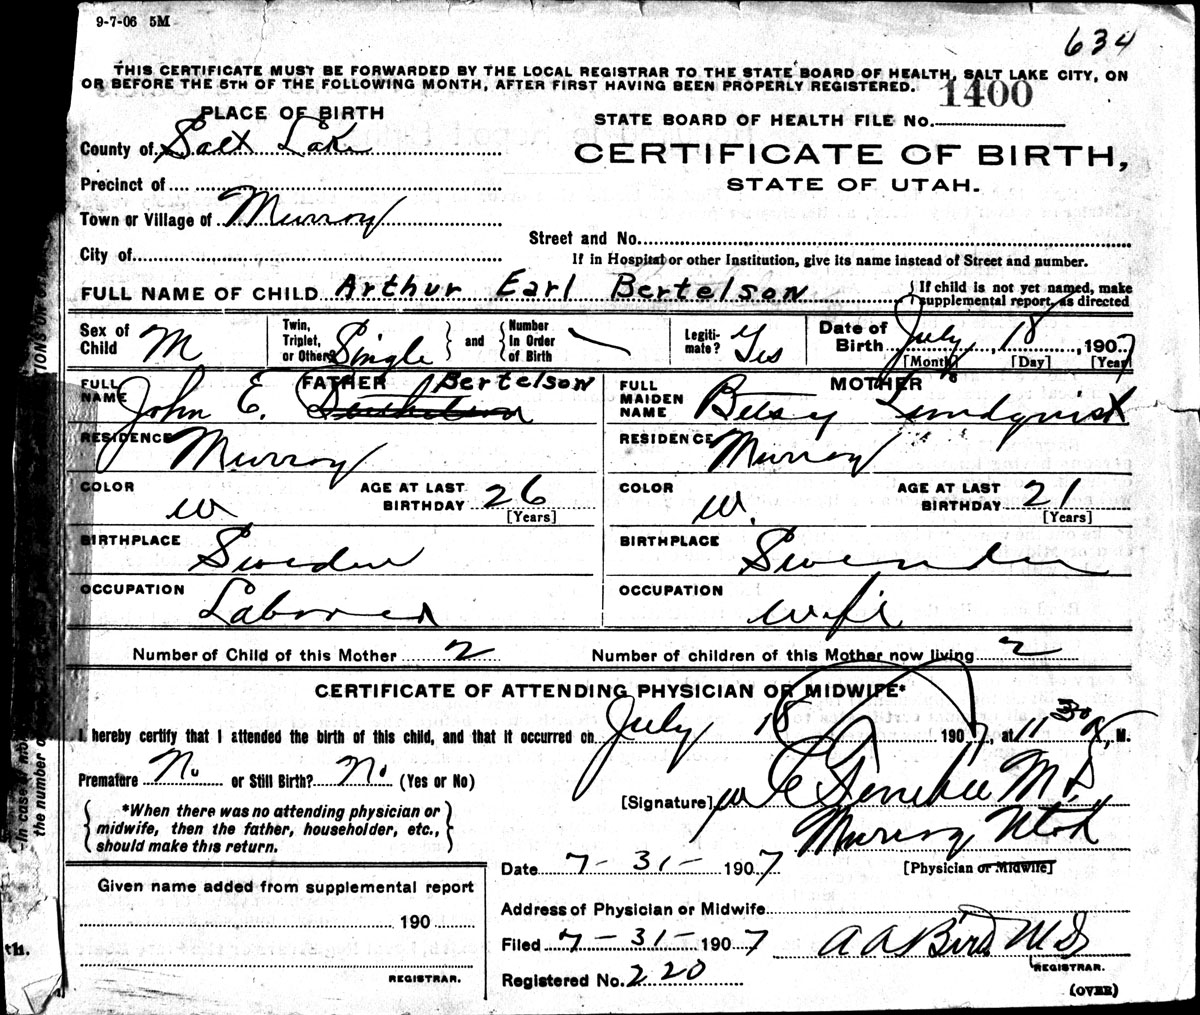 9-7-06 5M
634
THIS CERTIFICATE MUST BE FORWARDED BY THE LOCAL REGISTRAR TO THE STATE BOARD OF HEALTH, SALT LAKE CITY, ON
OR BEFORE THE 5TH OF THE FOLLOWING MONTH, AFTER FIRST HAVING BEEN PROPERLY REGISTERED.
1400
PLACE OF BIRTH
STATE BOARD OF HEALTH FILE No.
County of Salt Lake
CERTIFICATE OF BIRTH,
Precinct of
STATE OF UTAH.
Town or Village of Murray
Street and No.
City of
If in Hospital or other Institution, give its name instead of Street and number.
FULL NAME OF CHILD Arthur Earl Bertelson
If child is not yet named, make
supplemental report, as directed
Sex of Child M
Twin, Triplet, or Other? Single
and
Number In Order of Birth
Legiti-mate? Yes
Date of Birth July 18, 1907
[Month] [Day] [Year]
FATHER
FULL NAME John E. Bertelson
MOTHER
FULL MAIDEN NAME Betsy Lundquist
RESIDENCE Murray
RESIDENCE Murray
COLOR W
AGE AT LAST BIRTHDAY 26
[Years]
COLOR W.
AGE AT LAST BIRTHDAY 21
[Years]
BIRTHPLACE Sweden
BIRTHPLACE Sweden
OCCUPATION Laborer
OCCUPATION wife
Number of Child of this Mother 2
Number of children of this Mother now living 2
CERTIFICATE OF ATTENDING PHYSICIAN OR MIDWIFE*
I hereby certify that I attended the birth of this child, and that it occurred on July 18 1907, at 11 30 , M.
Premature No or Still Birth? No (Yes or No)
[Signature] M D
*When there was no attending physician or
midwife, then the father, householder, etc.,
should make this return.
Murray Utah
Date 7-31-1907
[Physician or Midwife]
Given name added from supplemental report
190
REGISTRAR.
Address of Physician or Midwife
Filed 7-31-1907
A A Bird M D
REGISTRAR.
Registered No. 220
(OVER)
In case of mo
the number o
TIONS
th.